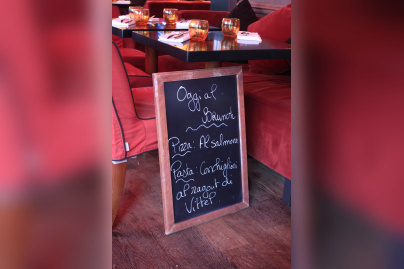 Oggi al
Brunch
Pizza: Al salmone
Pasta: Conchiglioni
al ragout de
Vittel